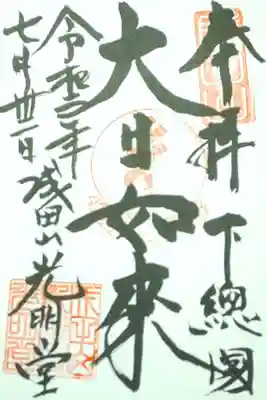 奉拝 下總國
大日如来
成田山光明堂
令和二年
七月卅一日